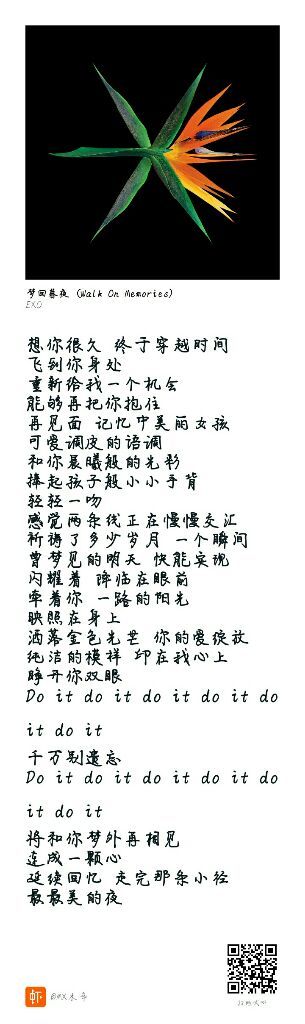 梦回暮夜 (Walk On Memories)
EXO
想你很久 终于穿越时间
飞到你身处
重新给我一个机会
能够再把你抱住
再见面 记忆中美丽女孩
可爱调皮的语调
和你晨曦般的光彩
捧起孩子般小小手背
轻轻一吻
感觉两条线正在慢慢交汇
祈祷了多少岁月 一个瞬间
曾梦见的明天 快能实现
闪耀着 降临在眼前
牵着你 一路的阳光
映照在身上
洒落金色光芒 你的爱绽放
纯洁的模样 印在我心上
睁开你双眼
Do it do it do it do it do
it do it
千万别遗忘
Do it do it do it do it do
it do it
将和你梦外再相见
连成一颗心
延续回忆 走完那条小径
最最美的夜
虾